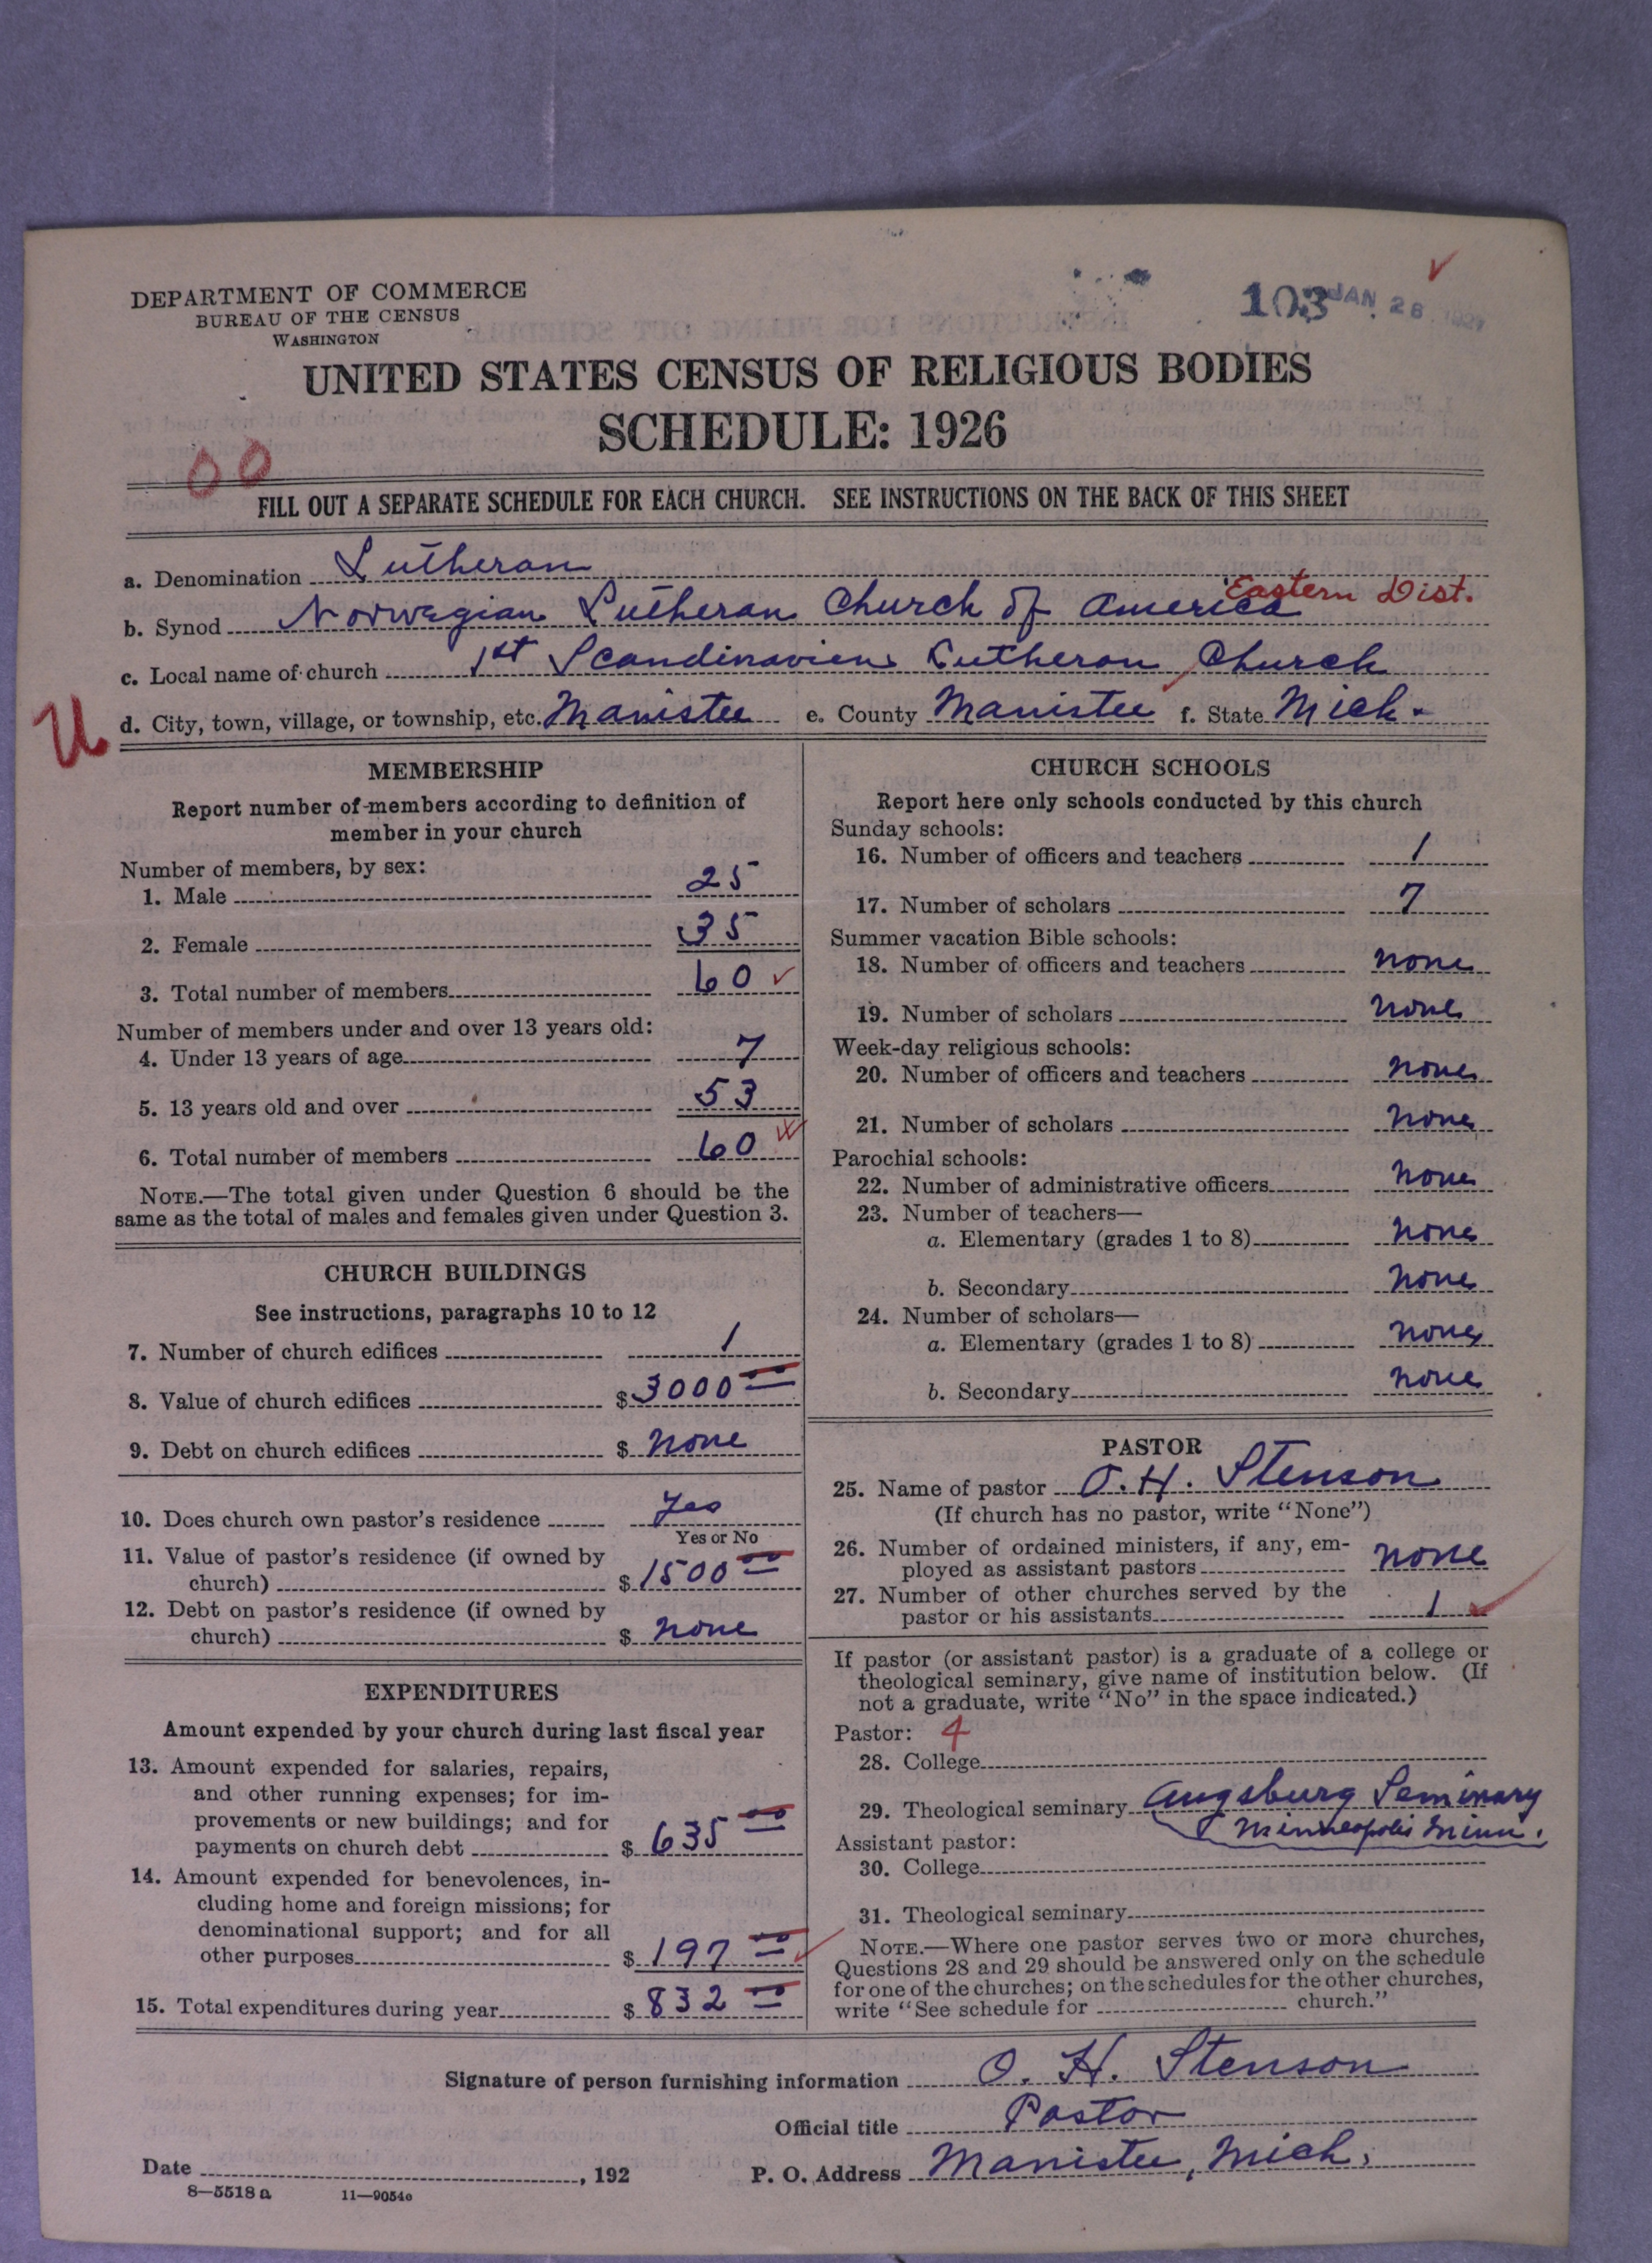 DEPARTMENT OF COMMERCE
BUREAU OF THE CENSUS
WASHINGTON
103 JAN 26 1927
UNITED STATES CENSUS OF RELIGIOUS BODIES
SCHEDULE: 1926
00
FILL OUT A SEPARATE SCHEDULE FOR EACH CHURCH. SEE INSTRUCTIONS ON THE BACK OF THIS SHEET
a. Denomination Lutheran
Eastern Dist.
b. Synod Norwegian Lutheran Church of America
c. Local name of church 1st Scandinavien Lutheran Church
U
d. City, town, village, or township, etc. Manistee e. County Manistee f. State Mich.
MEMBERSHIP
Report number of members according to definition of
member in your church
Number of members, by sex:
1. Male 25
2. Female 35
3. Total number of members 60
Number of members under and over 13 years old:
4. Under 13 years of age 7
5. 13 years old and over 53
6. Total number of members 60
NOTE.—The total given under Question 6 should be the
same as the total of males and females given under Question 3.
CHURCH BUILDINGS
See instructions, paragraphs 10 to 12
7. Number of church edifices 1
8. Value of church edifices $3000 00
9. Debt on church edifices $ none
10. Does church own pastor's residence Yes
Yes or No
11. Value of pastor's residence (if owned by
church) $1500 00
12. Debt on pastor's residence (if owned by
church) $ none
EXPENDITURES
Amount expended by your church during last fiscal year
13. Amount expended for salaries, repairs,
and other running expenses; for im-
provements or new buildings; and for
payments on church debt $ 635 00
14. Amount expended for benevolences, in-
cluding home and foreign missions; for
denominational support; and for all
other purposes $ 197 00
15. Total expenditures during year $ 832 00
CHURCH SCHOOLS
Report here only schools conducted by this church
Sunday schools:
16. Number of officers and teachers 1
17. Number of scholars 7
Summer vacation Bible schools:
18. Number of officers and teachers none
19. Number of scholars none
Week-day religious schools:
20. Number of officers and teachers none
21. Number of scholars none
Parochial schools:
22. Number of administrative officers none
23. Number of teachers—
a. Elementary (grades 1 to 8) none
b. Secondary none
24. Number of scholars—
a. Elementary (grades 1 to 8) none
b. Secondary none
PASTOR
25. Name of pastor O. H. Stenson
(If church has no pastor, write "None")
26. Number of ordained ministers, if any, em-
ployed as assistant pastors none
27. Number of other churches served by the
pastor or his assistants 1
If pastor (or assistant pastor) is a graduate of a college or
theological seminary, give name of institution below. (If
not a graduate, write "No" in the space indicated.)
Pastor: 4
28. College
29. Theological seminary Augsburg Seminary
Minneapolis Minn.
Assistant pastor:
30. College
31. Theological seminary
NOTE.—Where one pastor serves two or more churches,
Questions 28 and 29 should be answered only on the schedule
for one of the churches; on the schedules for the other churches,
write "See schedule for church."
Signature of person furnishing information O. H. Stenson
Official title Pastor
Date , 192 P. O. Address Manistee, Mich.
8—5518 a 11—9054c